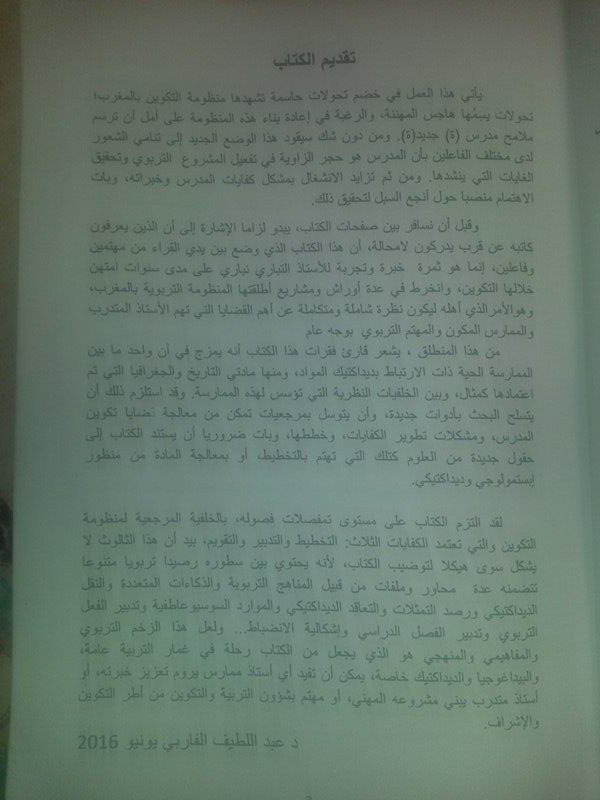 تقديم الكتاب
يأتي هذا العمل في خضم تحولات حاسمة تشهدها منظومة التكوين بالمغرب؛
تحولات يسمُها هاجس المهننة، والرغبة في إعادة بناء هذه المنظومة على أمل أن ترسم
ملامح مدرس (ة) جديد(ة). ومن دون شك سيقود هذا الوضع الجديد إلى تنامي الشعور
لدى مختلف الفاعلين بأن المدرس هو حجر الزاوية في تفعيل المشروع التربوي وتحقيق
الغايات التي ينشدها. ومن ثم تزايد الانشغال بمشكل كفايات المدرس وخبراته، وبات
الاهتمام منصبا حول أنجع السبل لتحقيق ذلك.
وقبل أن نسافر بين صفحات الكتاب، يبدو لزاما الإشارة إلى أن الذين يعرفون
كاتبه عن قرب يدركون لامحالة، أن هذا الكتاب الذي وضع بين يدي القراء من مهتمين
وفاعلين، إنما هو ثمرة خبرة وتجربة للأستاذ التباري نباري على مدى سنوات امتهن
خلالها التكوين، وانخرط في عدة أوراش ومشاريع أطلقتها المنظومة التربوية بالمغرب،
وهوالأمرالذي أهله ليكون نظرة شاملة ومتكاملة عن أهم القضايا التي تهم الأستاذ المتدرب
والممارس المكون والمهتم التربوي بوجه عام
من هذا المنطلق ، يشعر قارئ فقرات هذا الكتاب أنه يمزج في أن واحد ما بين
الممارسة الحية ذات الارتباط بديداكتيك المواد، ومنها مادتي التاريخ والجغرافيا التي تم
اعتمادها كمثال، وبين الخلفيات النظرية التي تؤسس لهذه الممارسة. وقد استلزم ذلك أن
يتسلح البحث بأدوات جديدة، وأن يتوسل بمرجعيات تمكن من معالجة قضايا تكوين
المدرس، ومشكلات تطوير الكفايات، وخططها، وبات ضروريا أن يستند الكتاب إلى
حقول جديدة من العلوم كتلك التي تهتم بالتخطيط، أو بمعالجة المادة من منظور
إبستمولوجي وديداكتيكي.
لقد التزم الكتاب على مستوى تمفصلات فصوله، بالخلفية المرجعية لمنظومة
التكوين والتي تعتمد الكفايات الثلاث: التخطيط والتدبير والتقويم، بيد أن هذا الثالوث لا
يشكل سوى هيكلا لتوضيب الكتاب، لأنه يحتوي بين سطوره رصيدا تربويا متنوعا
تتضمنه عدة محاور وملفات من قبيل المناهج التربوية والذكاءات المتعددة والنقل
الديداكتيكي ورصد التمثلات والتعاقد الديداكتيكي والموارد السوسيوعاطفية وتدبير الفعل
التربوي وتدبير الفصل الدراسي وإشكالية الانضباط... ولعل هذا الزخم التربوي
والمفاهيمي والمنهجي هو الذي يجعل من الكتاب رحلة في غمار التربية عامة،
والبيداغوجيا والديداكتيك خاصة، يمكن أن تفيد أي أستاذ ممارس يروم تعزيز خبرته، أو
أستاذ متدرب يبني مشروعه المهني، أو مهتم بشؤون التربية والتكوين من أطر التكوين
والإشراف.
د عبد اللطيف الفاربي يونيو 2016